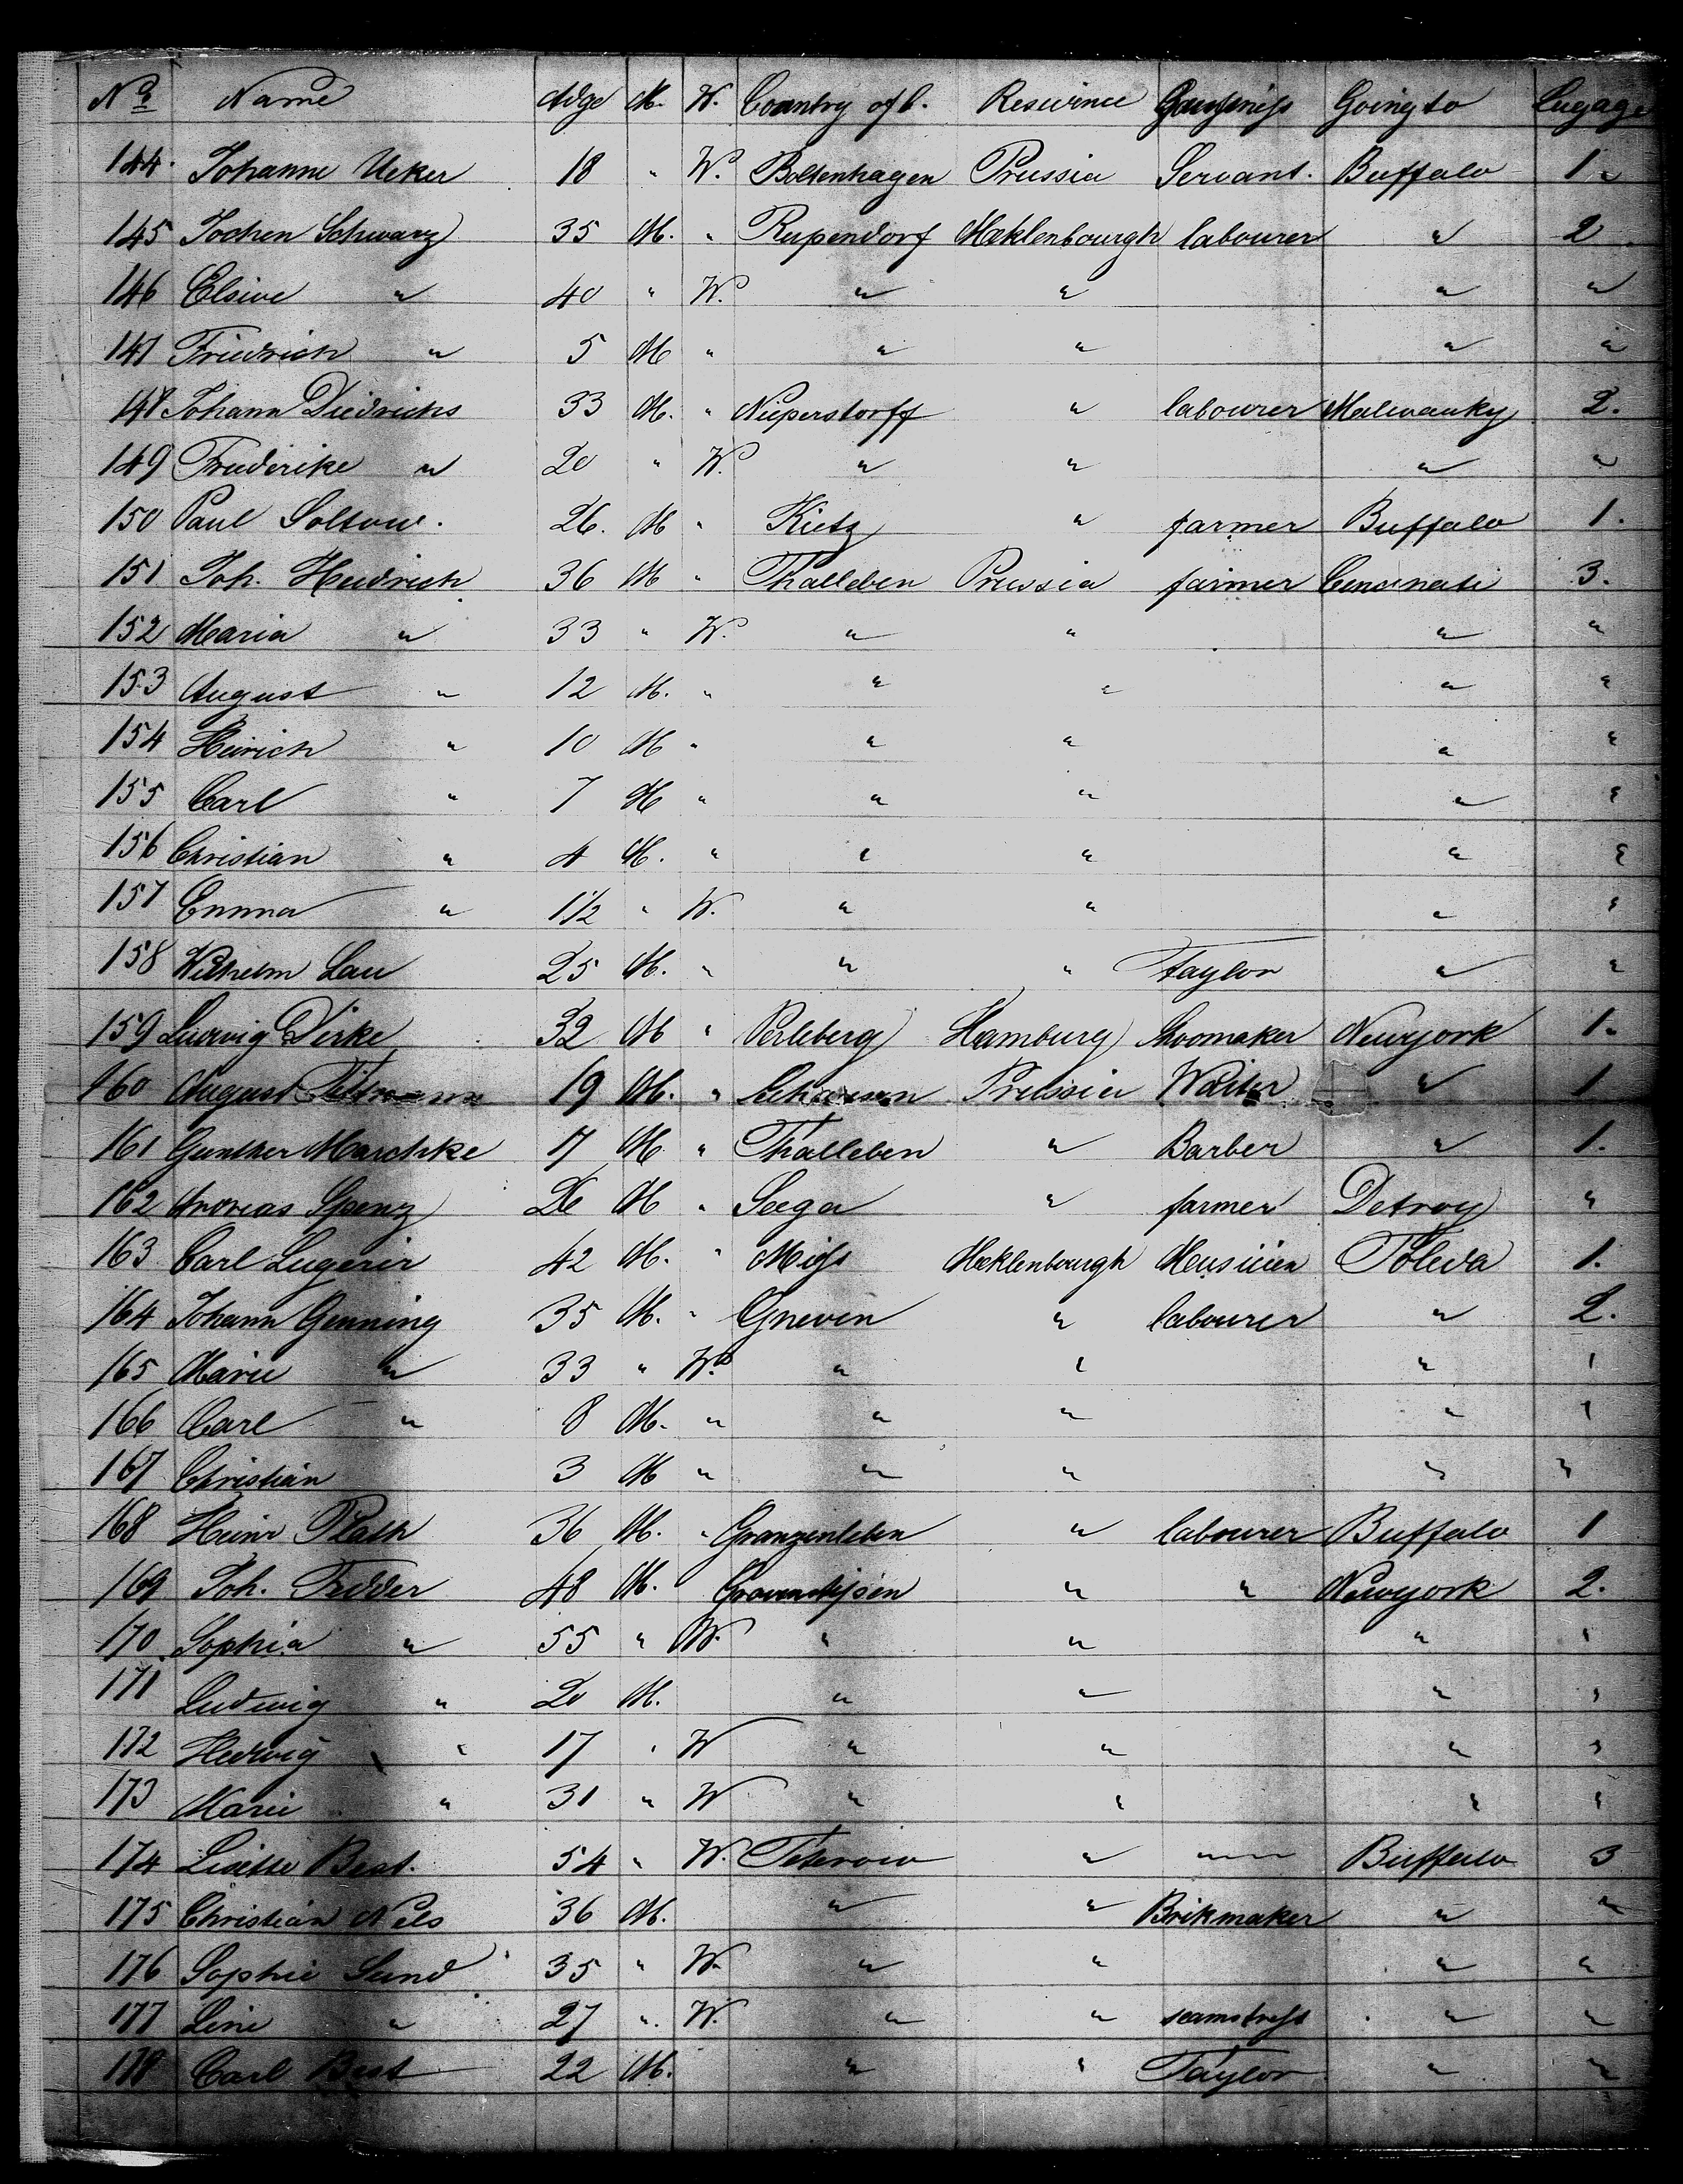 No Name Adge M. W. Country of b. Going to Lugage
144. Johanne Ueker 18 " W. Boltenhagen Prussia Servant. Buffalo 1 "
145 Jochen Schwarz 35 M. " Rupendorf Meklenbourgh labourer " 2.
146 Elsive " 40 " W. " " " "
147 Friedrich " 5 M " " " " "
148 Johann Diedrichs 33 M. " Nieperstorff " labourer Malwauky 2.
149 Frederike " 20 " W. " " " "
150 Paul Soltow. 26. M " Kietz " farmer Buffalo 1.
151 Joh. Heidrich 36 M " Thalleben Prussia farmer Cincinati 3.
152 Maria " 33 " W. " " " "
153 August " 12 M. " " " " "
154 Heirich " 10 M " " " " "
155 Carl " 7 M " " " " "
156 Christian " 4 M. " " " " "
157 Emma " 1 1/2 " W. " " " "
158 Wilhelm Lau 25 M. " " " Taylor " "
159 Ludwig Dirke 32 M " Perleberg Hamburg Shoomaker Newyork 1.
160 August 19 M. " Prussia Waiter " 1
161 Gunther Marchke 17 M " Thalleben " Barber " 1.
162 Andreas Spenz 26 M " Seega " farmer Detroy "
163 Carl Lugerir 42 M. " Meklenbourgh Toleda 1.
164 Johann Genning 35 M. " Gneven " labourer " 2.
165 Marie " 33 " W. " " " "
166 Carl " 8 M. " " " " "
167 Christian 3 M " " " " "
168 Heinr Plath 36 M. " Granzenleben " labourer Buffalo 1
169 Joh. Tredder 48 M. " " Newyork 2.
170 Sophia " 55 " W. " " " "
171 Ludwig " 20 M. " " " "
172 Hedwig " 17 " W " " " "
173 Marie " 31 " W " " " "
174 Lisette Best. 54 " W. Teterow " " Buffalo 3
175 Christian Nels 36 M. " " Brikmaker " "
176 Sophie Sund 35 " W. " " " "
177 Line " 27 " W. " " seamstress " "
178 Carl Best 22 M. " " Taylor " "